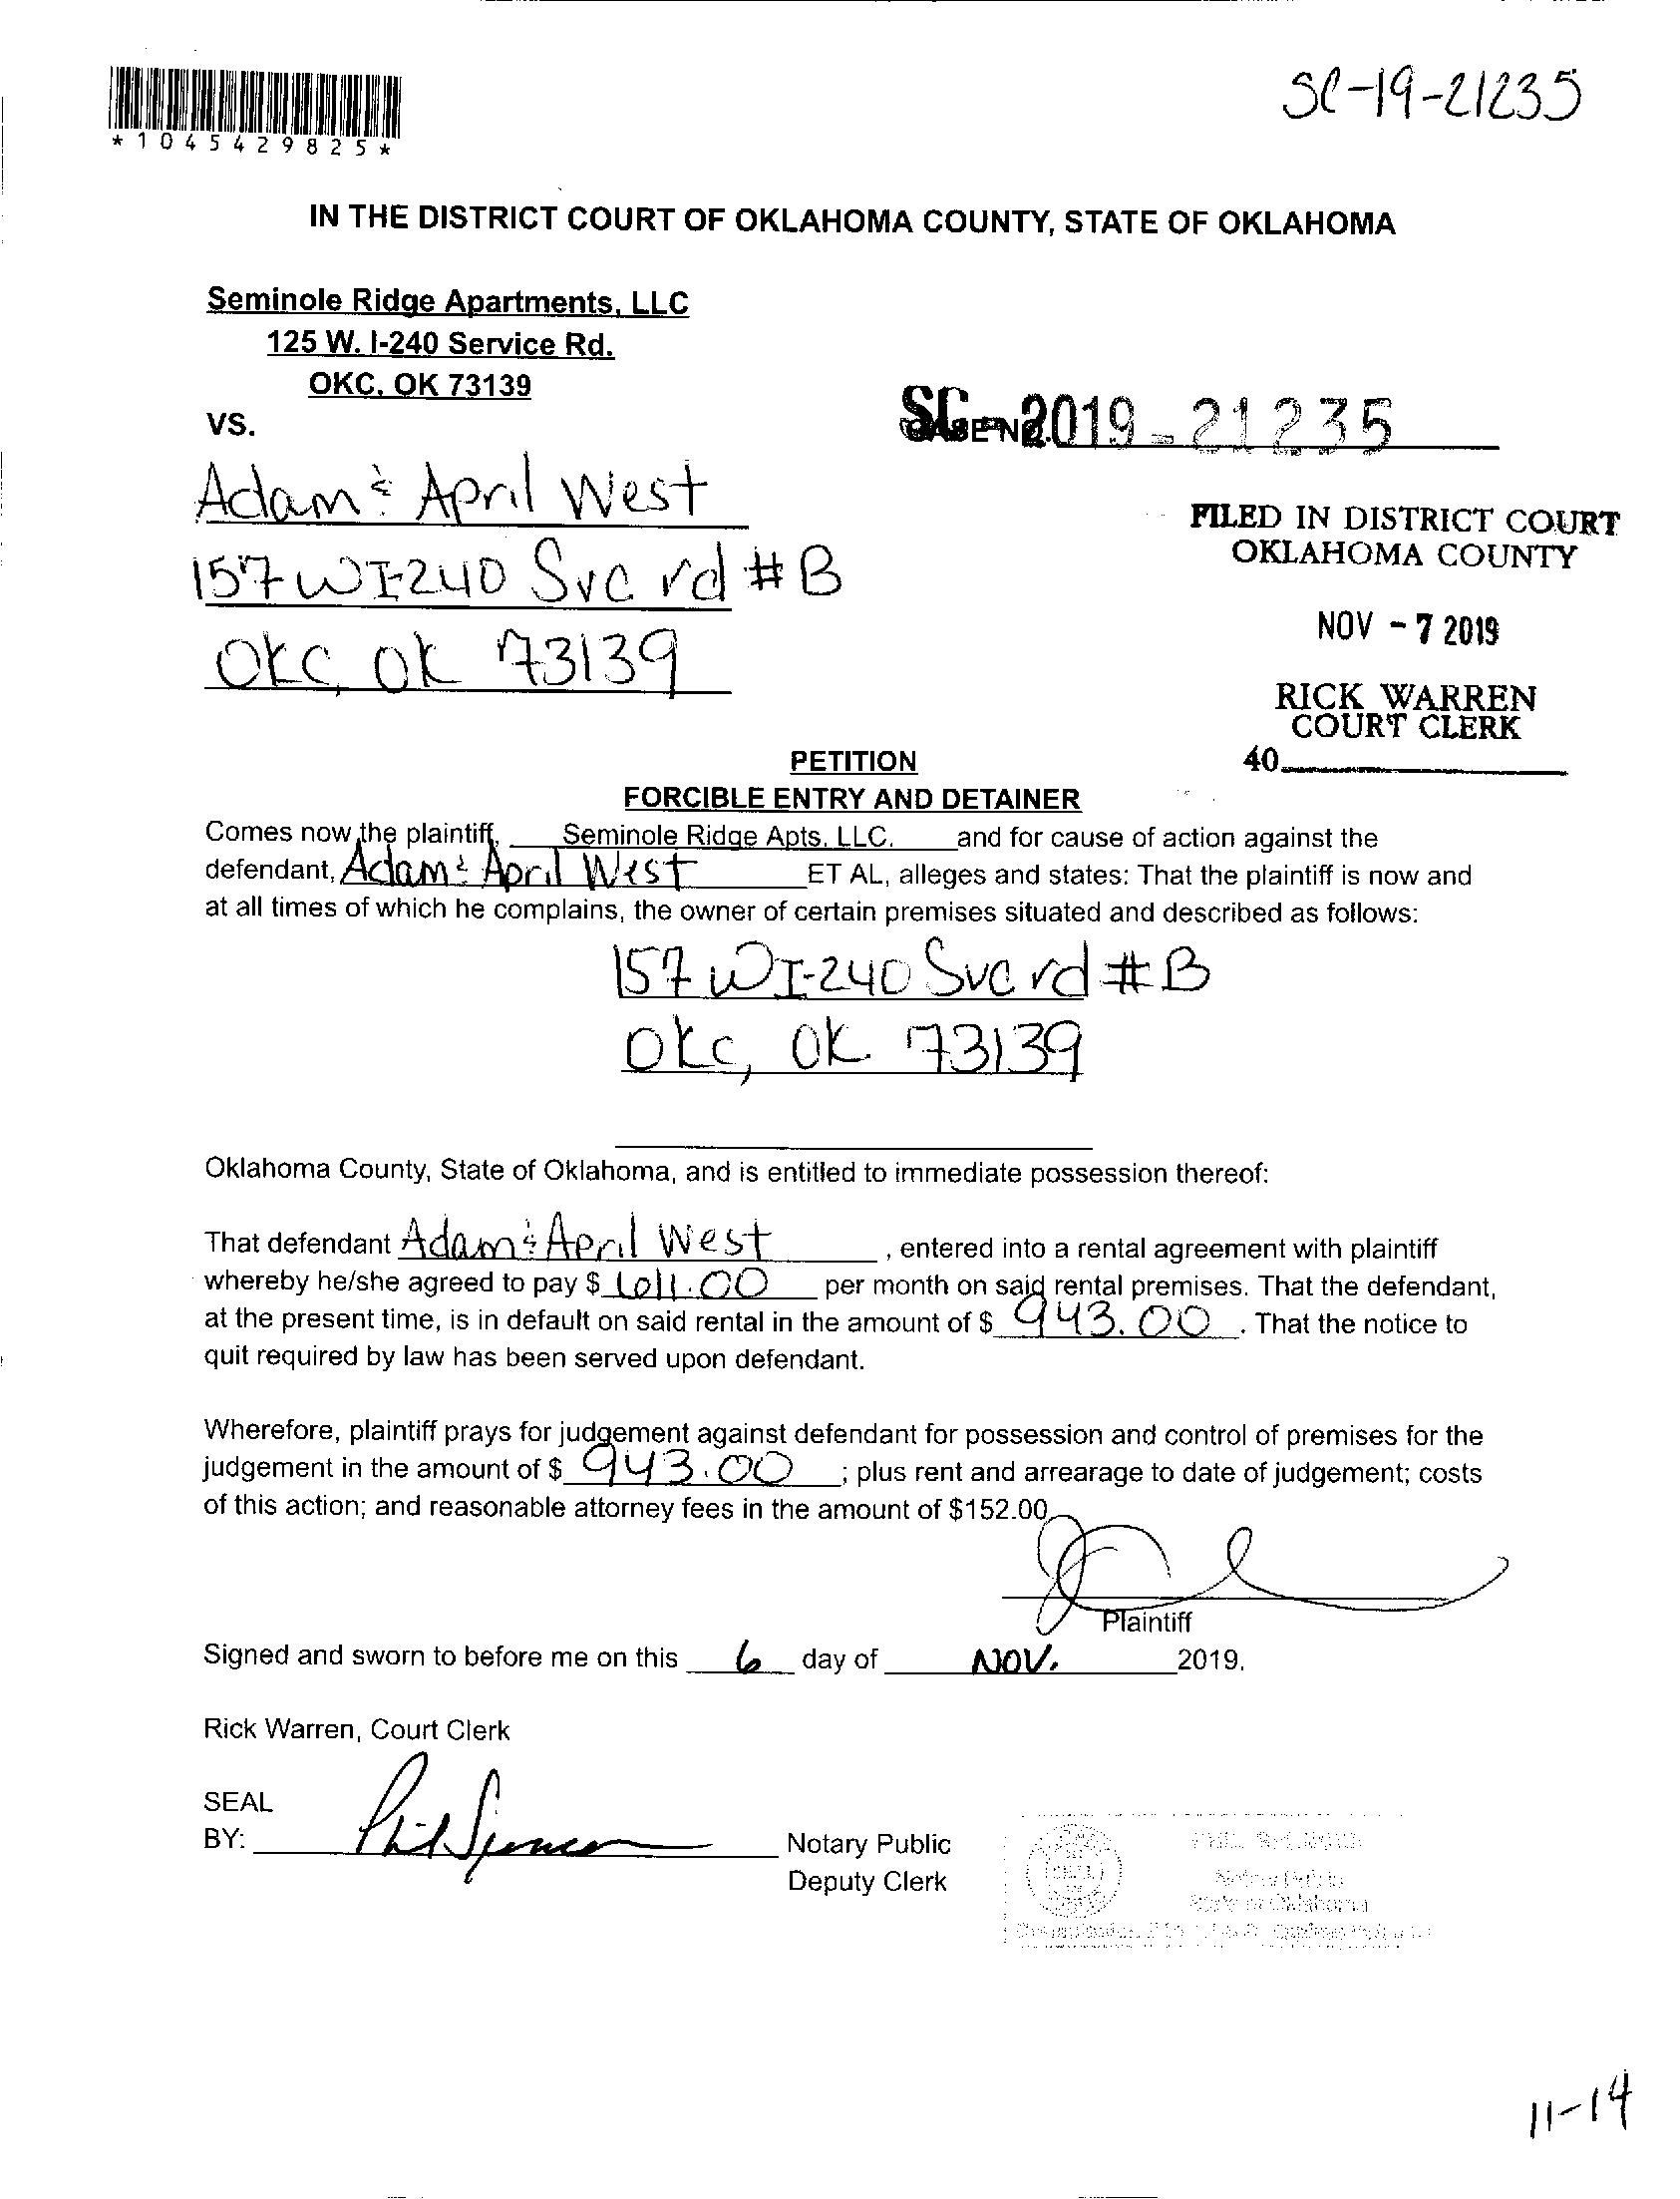 SC-19-21235
*1045429825*
IN THE DISTRICT COURT OF OKLAHOMA COUNTY, STATE OF OKLAHOMA
Seminole Ridge Apartments, LLC
125 W. I-240 Service Rd.
OKC, OK 73139
VS.
SC-2019-21235
Adam & April West
157 W I-240 Svc rd #B
OKC, OK 73139
FILED IN DISTRICT COURT
OKLAHOMA COUNTY
NOV - 7 2019
RICK WARREN
COURT CLERK
40
PETITION
FORCIBLE ENTRY AND DETAINER
Comes now the plaintiff, Seminole Ridge Apts. LLC. and for cause of action against the
defendant, Adam & April West ET AL, alleges and states: That the plaintiff is now and
at all times of which he complains, the owner of certain premises situated and described as follows:
157 W I-240 Svc rd #B
OKc, OK 73139
Oklahoma County, State of Oklahoma, and is entitled to immediate possession thereof:
That defendant Adam & April West, entered into a rental agreement with plaintiff
whereby he/she agreed to pay $ 1011.00 per month on said rental premises. That the defendant,
at the present time, is in default on said rental in the amount of $ 943.00. That the notice to
quit required by law has been served upon defendant.
Wherefore, plaintiff prays for judgement against defendant for possession and control of premises for the
judgement in the amount of $ 943.00; plus rent and arrearage to date of judgement; costs
of this action; and reasonable attorney fees in the amount of $152.00
Plaintiff
Signed and sworn to before me on this 6 day of NOV. 2019.
Rick Warren, Court Clerk
SEAL
BY: Phil Spencer Notary Public
Deputy Clerk
Notary Public
State of Oklahoma
11-14